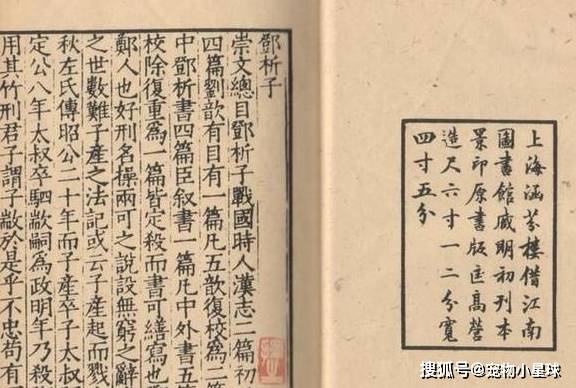 上海涵芬樓借江南
圖書館臧明初刊本
景印原書版匡高營
造尺六寸一二分寬
四寸五分
鄧析子
崇文總目鄧析子戰國時人漢志二篇初
四篇劉歆有目有一篇凡五歆復校爲二篇
中鄧析書四篇臣叙書一篇凡中外書五
校除復重爲一篇皆定殺而書可繕寫也
鄭人也好刑名操兩可之說設無窮之辭
之世數難子產之法記或云子產起而戮
秋左氏傳昭公二十年而子產卒子太叔
定公八年太叔卒駟歂嗣爲政明年乃殺
用其竹刑君子謂子歂於是乎不忠苟有
搜狐号@宠物小星球